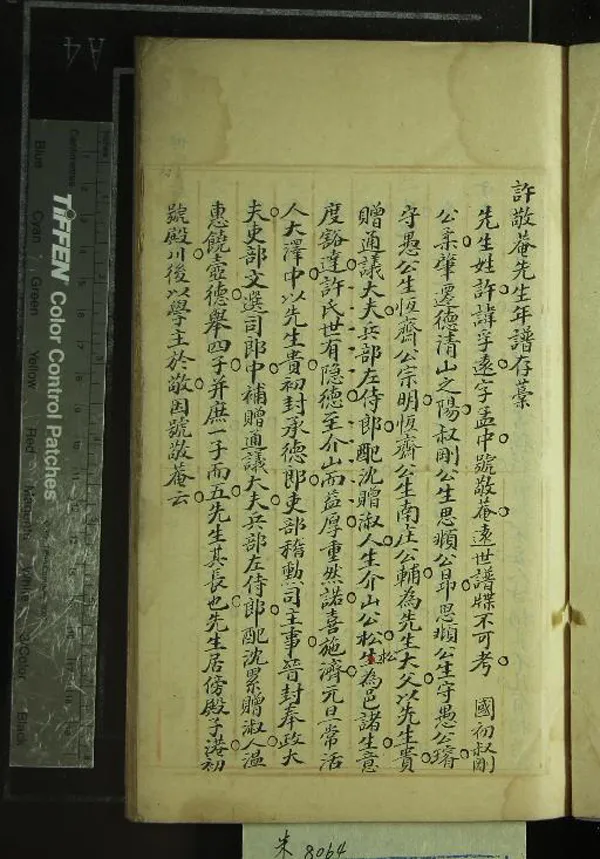 許敬菴先生年譜存藁
先生姓許諱孚遠字孟中號敬菴遠世譜牒不可考 國初叔剛
公柔肇遷德清山之陽叔剛公生思順公昂思順公生守愚公璿
守愚公生恆齋公宗明恆齋公生南庄公輔為先生大父以先生貴
贈通議大夫兵部左侍郎配沈贈淑人生介山公松松為邑諸生意
度豁達許氏世有隱德至介山而益厚重然諾喜施濟元旦常活
人大澤中以先生貴初封承德郎吏部稽勳司主事晉封奉政大
夫吏部文選司郎中補贈通議大夫兵部左侍郎配沈累贈淑人溫
惠饒壼德舉四子并庶一子而五先生其長也先生居傍殿子港初
號殿川後以學主於敬因號敬菴云
A4
TIFFEN Color Control Patches
Blue
Cyan
Green
Yellow
Red
Magenta
White
Color
Black
Centimetres
朱 8064